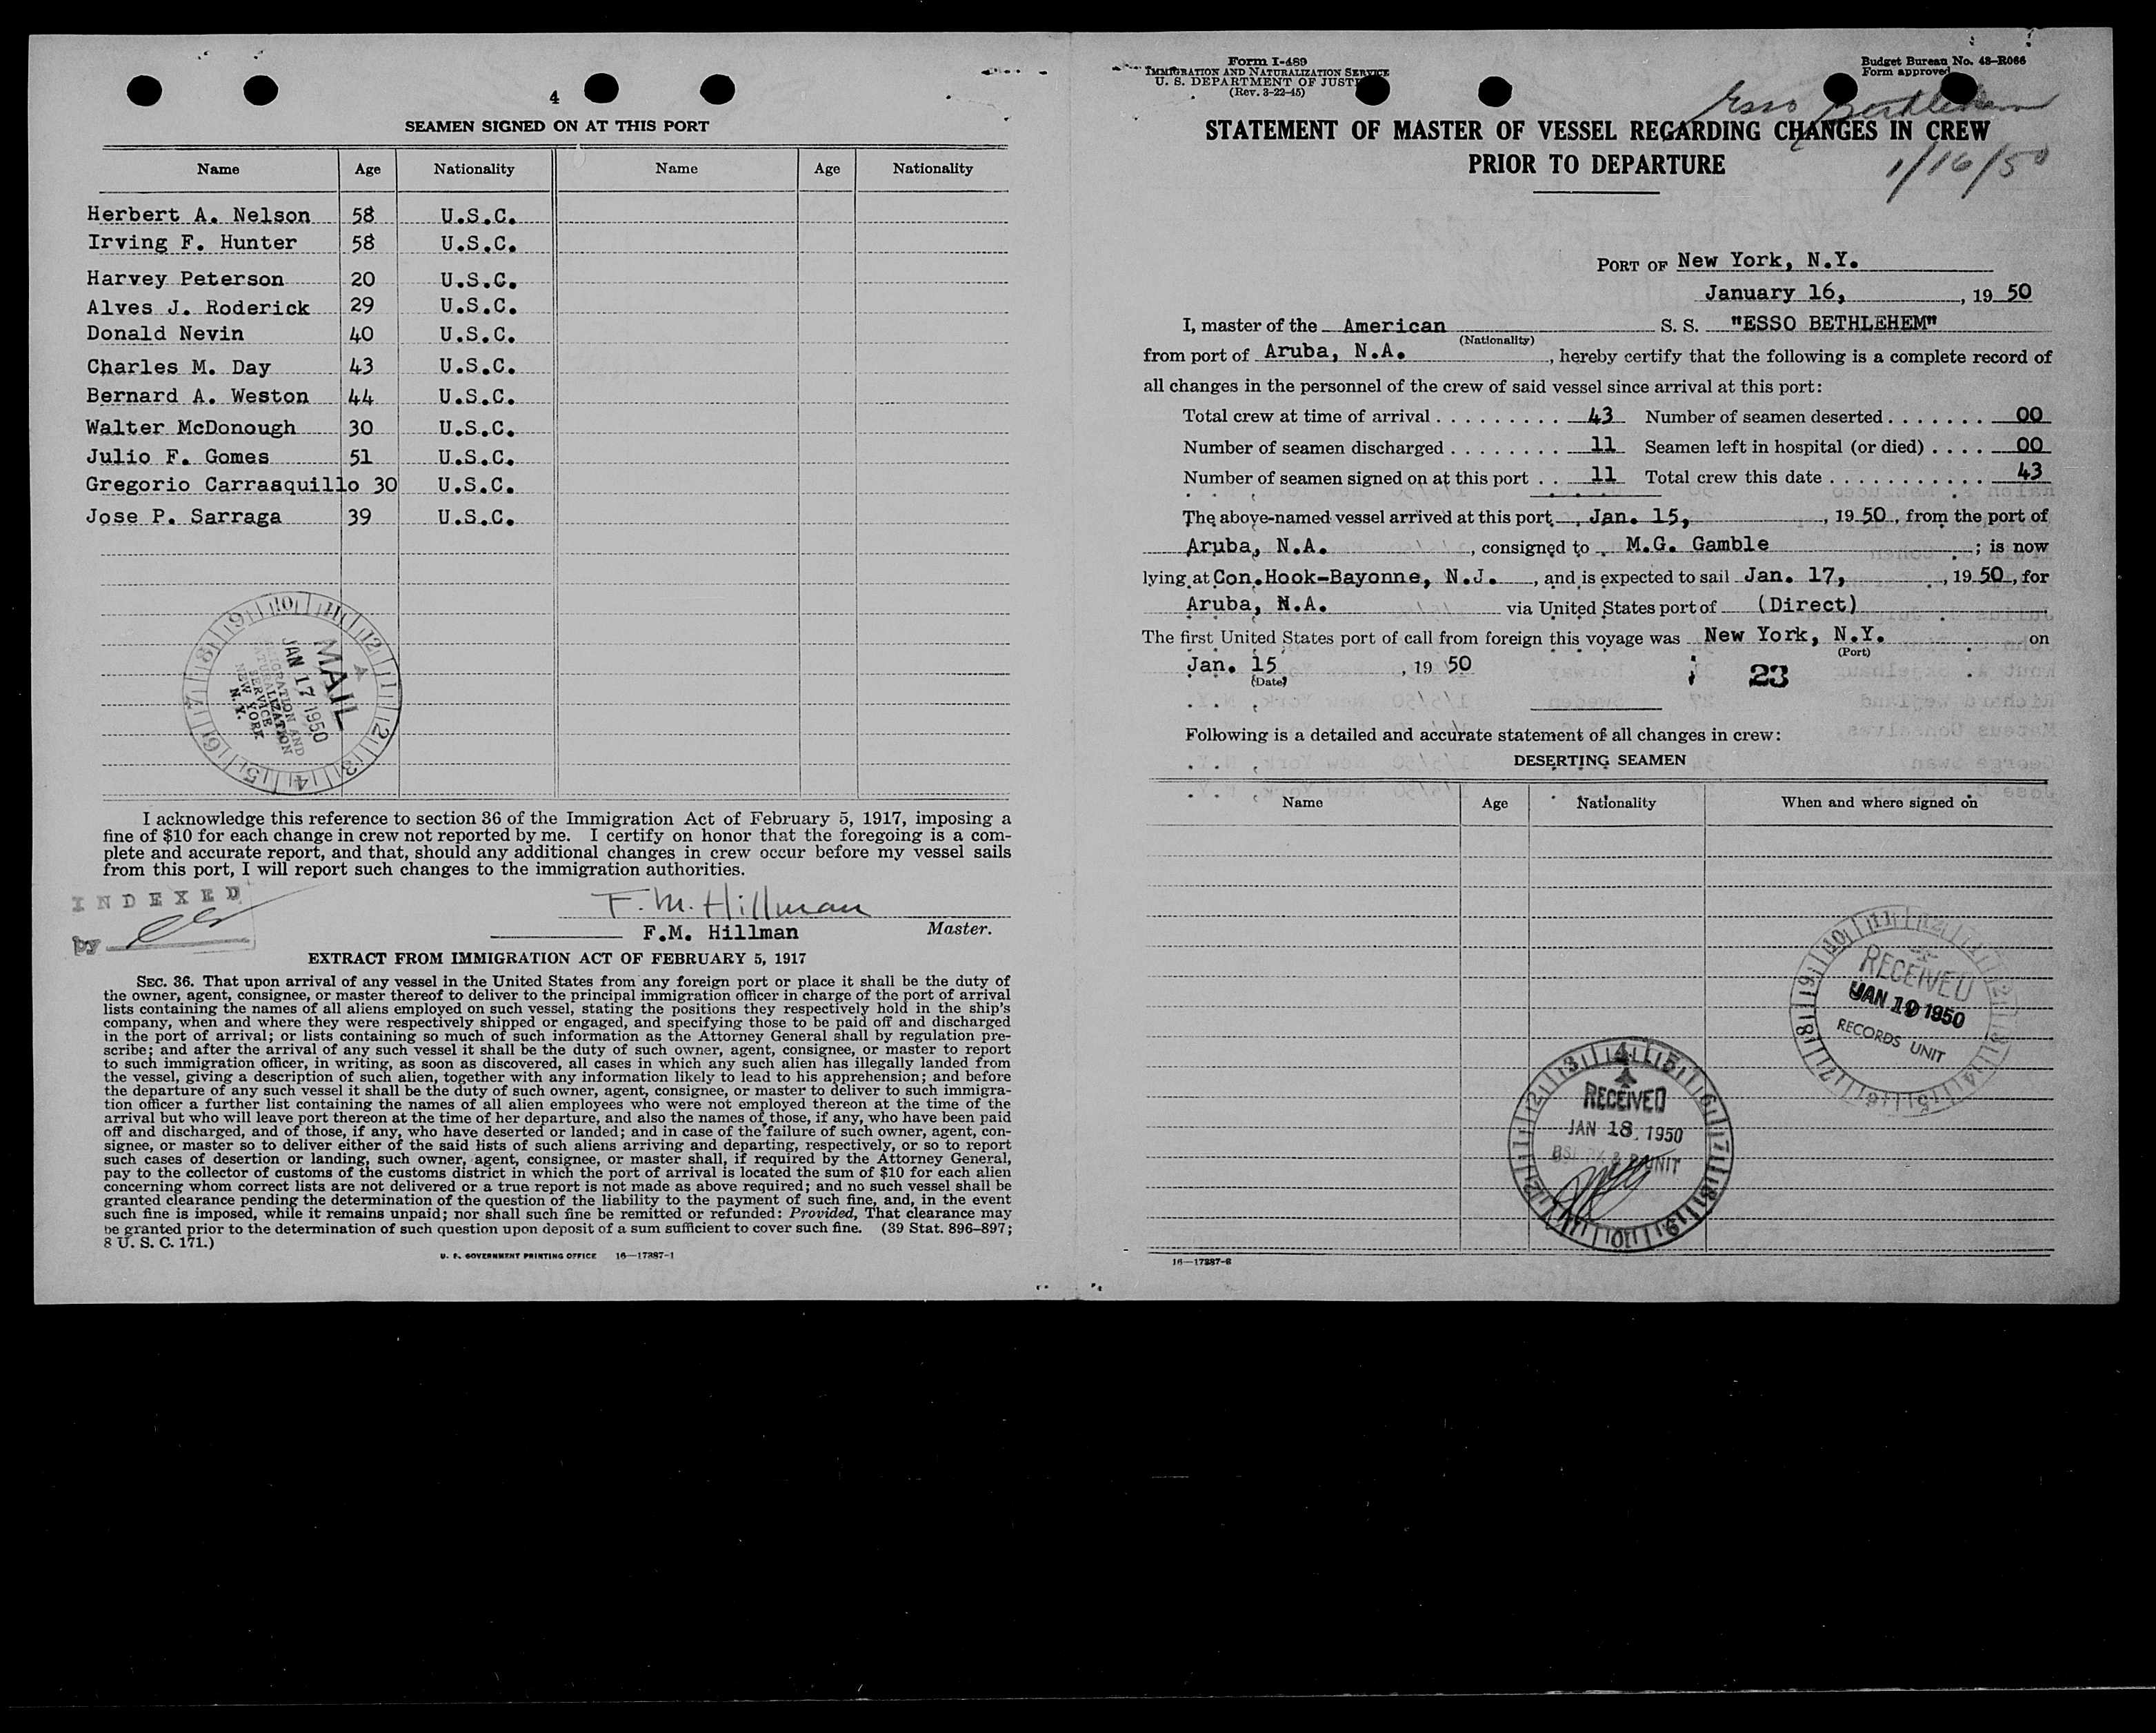 4
SEAMEN SIGNED ON AT THIS PORT
Name Age Nationality Name Age Nationality
Herbert A. Nelson 58 U.S.C.
Irving F. Hunter 58 U.S.C.
Harvey Peterson 20 U.S.C.
Alves J. Roderick 29 U.S.C.
Donald Nevin 40 U.S.C.
Charles M. Day 43 U.S.C.
Bernard A. Weston 44 U.S.C.
Walter McDonough 30 U.S.C.
Julio F. Gomes 51 U.S.C.
Gregorio Carrasquillo 30 U.S.C.
Jose P. Sarraga 39 U.S.C.
MAIL
JAN 17 1950
IMMIGRATION AND
NATURALIZATION
SERVICE
NEW YORK
N.Y.
I acknowledge this reference to section 36 of the Immigration Act of February 5, 1917, imposing a
fine of $10 for each change in crew not reported by me. I certify on honor that the foregoing is a com-
plete and accurate report, and that, should any additional changes in crew occur before my vessel sails
from this port, I will report such changes to the immigration authorities.
INDEXED
by
F. M. Hillman
F.M. Hillman Master.
EXTRACT FROM IMMIGRATION ACT OF FEBRUARY 5, 1917
SEC. 36. That upon arrival of any vessel in the United States from any foreign port or place it shall be the duty of
the owner, agent, consignee, or master thereof to deliver to the principal immigration officer in charge of the port of arrival
lists containing the names of all aliens employed on such vessel, stating the positions they respectively hold in the ship's
company, when and where they were respectively shipped or engaged, and specifying those to be paid off and discharged
in the port of arrival; or lists containing so much of such information as the Attorney General shall by regulation pre-
scribe; and after the arrival of any such vessel it shall be the duty of such owner, agent, consignee, or master to report
to such immigration officer, in writing, as soon as discovered, all cases in which any such alien has illegally landed from
the vessel, giving a description of such alien, together with any information likely to lead to his apprehension; and before
the departure of any such vessel it shall be the duty of such owner, agent, consignee, or master to deliver to such immigra-
tion officer a further list containing the names of all alien employees who were not employed thereon at the time of the
arrival but who will leave port thereon at the time of her departure, and also the names of those, if any, who have been paid
off and discharged, and of those, if any, who have deserted or landed; and in case of the failure of such owner, agent, con-
signee, or master so to deliver either of the said lists of such aliens arriving and departing, respectively, or so to report
such cases of desertion or landing, such owner, agent, consignee, or master shall, if required by the Attorney General,
pay to the collector of customs of the customs district in which the port of arrival is located the sum of $10 for each alien
concerning whom correct lists are not delivered or a true report is not made as above required; and no such vessel shall be
granted clearance pending the determination of the question of the liability to the payment of such fine, and, in the event
such fine is imposed, while it remains unpaid; nor shall such fine be remitted or refunded: Provided, That clearance may
be granted prior to the determination of such question upon deposit of a sum sufficient to cover such fine. (39 Stat. 896-897;
8 U. S. C. 171.)
U. S. GOVERNMENT PRINTING OFFICE 16—17387-1
Form I-489
IMMIGRATION AND NATURALIZATION SERVICE
U. S. DEPARTMENT OF JUSTI
(Rev. 3-22-45)
Budget Bureau No. 43-R066
Form approved
Esso Bethlehem
STATEMENT OF MASTER OF VESSEL REGARDING CHANGES IN CREW
PRIOR TO DEPARTURE
1/16/50
PORT OF New York, N.Y.
January 16, , 19 50
I, master of the American S. S. "ESSO BETHLEHEM"
(Nationality)
from port of Aruba, N.A. , hereby certify that the following is a complete record of
all changes in the personnel of the crew of said vessel since arrival at this port:
Total crew at time of arrival . . . . . . . . . 43 Number of seamen deserted . . . . . . . 00
Number of seamen discharged . . . . . . . . 11 Seamen left in hospital (or died) . . . . 00
Number of seamen signed on at this port . . 11 Total crew this date . . . . . . . . . . . 43
The above-named vessel arrived at this port Jan. 15, , 19 50 , from the port of
Aruba, N.A. , consigned to M.G. Gamble ; is now
lying at Con.Hook-Bayonne, N.J. , and is expected to sail Jan. 17, , 19 50 , for
Aruba, N.A. via United States port of (Direct)
The first United States port of call from foreign this voyage was New York, N.Y. on
(Port)
Jan. 15 , 19 50
(Date)
23
Following is a detailed and accurate statement of all changes in crew:
DESERTING SEAMEN
Name Age Nationality When and where signed on
RECEIVED
JAN 19 1950
RECORDS UNIT
RECEIVED
JAN 18 1950
UNIT
16—17387-2